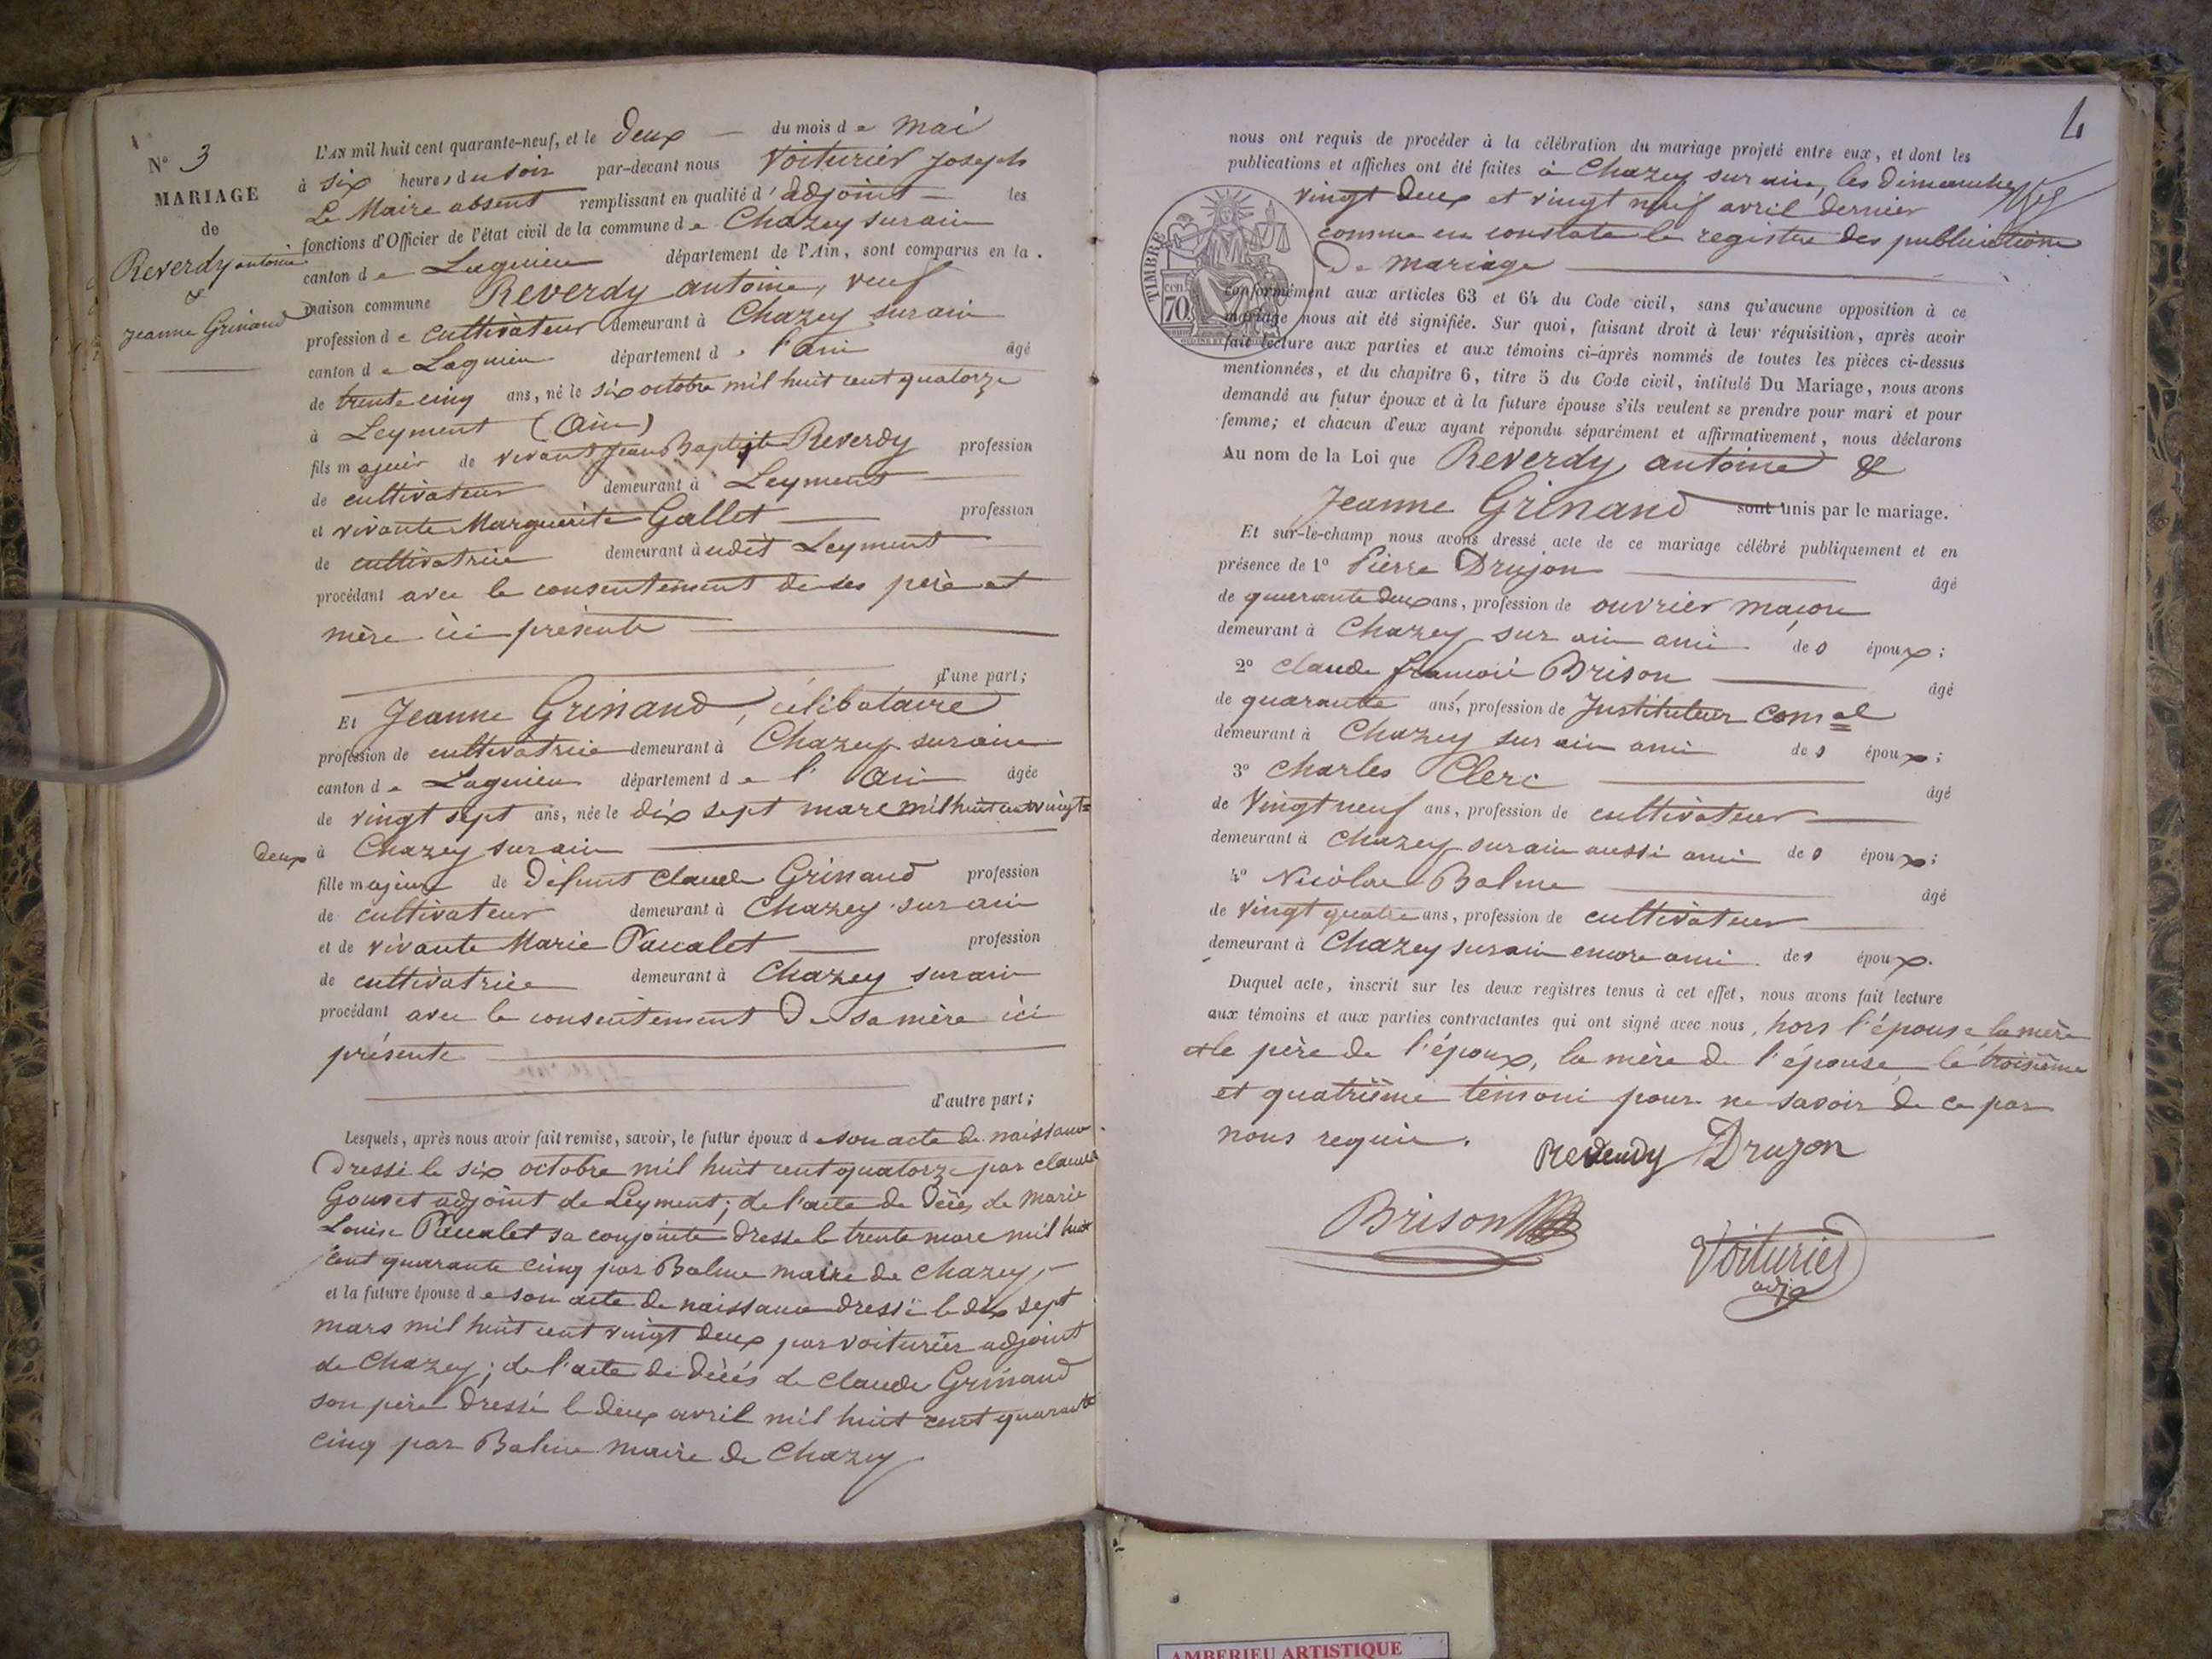 N° 3
MARIAGE
de
Reverdy antoine
&
Jeanne Grinand
L'AN mil huit cent quarante-neuf, et le deux — du mois de mai
à six heures du soir par-devant nous Voiturier Joseph
Le Maire absent remplissant en qualité d'adjoint — les
fonctions d'Officier de l'état civil de la commune de Chazey sur ain
canton de Lagnieu département de l'Ain, sont comparus en la
maison commune Reverdy antoine, veuf
profession de cultivateur demeurant à Chazey sur ain
canton de Lagnieu département de l'ain âgé
de trente cinq ans, né le six octobre mil huit cent quatorze
à Leyment (Ain)
fils majeur de vivant Jean Baptiste Reverdy profession
de cultivateur demeurant à Leyment
et vivante Marguerite Gallet — profession
de cultivatrice demeurant à udit Leyment
procédant avec le consentement de ses père et
mère ici présents
d'une part;
Et Jeanne Grinand, célibataire
profession de cultivatrice demeurant à Chazey sur ain
canton de Lagnieu département de l'Ain âgée
de vingt sept ans, née le dix sept mars mil huit cent vingt=
deux à Chazey sur ain
fille majeure de défunt Claude Grinand profession
de cultivateur demeurant à Chazey sur ain
et de vivante Marie Paucalet — profession
de cultivatrice demeurant à Chazey sur ain
procédant avec le consentement De sa mère ici
présente
d'autre part;
Lesquels, après nous avoir fait remise, savoir, le futur époux de son acte de naissance
Dressé le six octobre mil huit cent quatorze par claude
adjoint de Leyment; de l'acte de Décès de Marie
Louise Paucalet sa conjointe dressé le trente mars mil huit
cent quarante cinq par Balme maire de Chazey,
et la future épouse de son acte de naissance dressé le dix sept
mars mil huit cent vingt deux par voiturier adjoint
de Chazey; de l'acte de décès de Claude Grinand
son père dressé le deux avril mil huit cent quarante
cinq par Balme maire de Chazey
4
nous ont requis de procéder à la célébration du mariage projeté entre eux, et dont les
publications et affiches ont été faites à Chazey sur ain, les dimanches
vingt deux et vingt neuf avril dernier
comme en constate le registre des publications
De mariage
TIMBRE
cen. 70
conformément aux articles 63 et 64 du Code civil, sans qu'aucune opposition à ce
mariage nous ait été signifiée. Sur quoi, faisant droit à leur réquisition, après avoir
fait lecture aux parties et aux témoins ci-après nommés de toutes les pièces ci-dessus
mentionnées, et du chapitre 6, titre 5 du Code civil, intitulé Du Mariage, nous avons
demandé au futur époux et à la future épouse s'ils veulent se prendre pour mari et pour
femme; et chacun d'eux ayant répondu séparément et affirmativement, nous déclarons
Au nom de la Loi que Reverdy antoine &
Jeanne Grinand sont unis par le mariage.
Et sur-le-champ nous avons dressé acte de ce mariage célébré publiquement et en
présence de 1° Pierre Drujon âgé
de quarante deux ans, profession de ouvrier maçon
demeurant à Chazey sur ain ami des époux;
2° Claude françois Brison âgé
de quarante ans, profession de Instituteur Comal
demeurant à Chazey sur ain ami des époux;
3° Charles Clerc âgé
de Vingt neuf ans, profession de cultivateur
demeurant à Chazey sur ain aussi ami des époux;
4° Nicolas Balme âgé
de vingt quatre ans, profession de cultivateur
demeurant à Chazey sur ain encore ami des époux.
Duquel acte, inscrit sur les deux registres tenus à cet effet, nous avons fait lecture
aux témoins et aux parties contractantes qui ont signé avec nous, hors l'épouse la mère
et le père de l'époux, la mère de l'épouse, le troisième
et quatrième témoins pour ne savoir de ce par
nous requis.
Reverdy Drujon
Brison
Voiturier
adj
AMBERIEU ARTISTIQUE